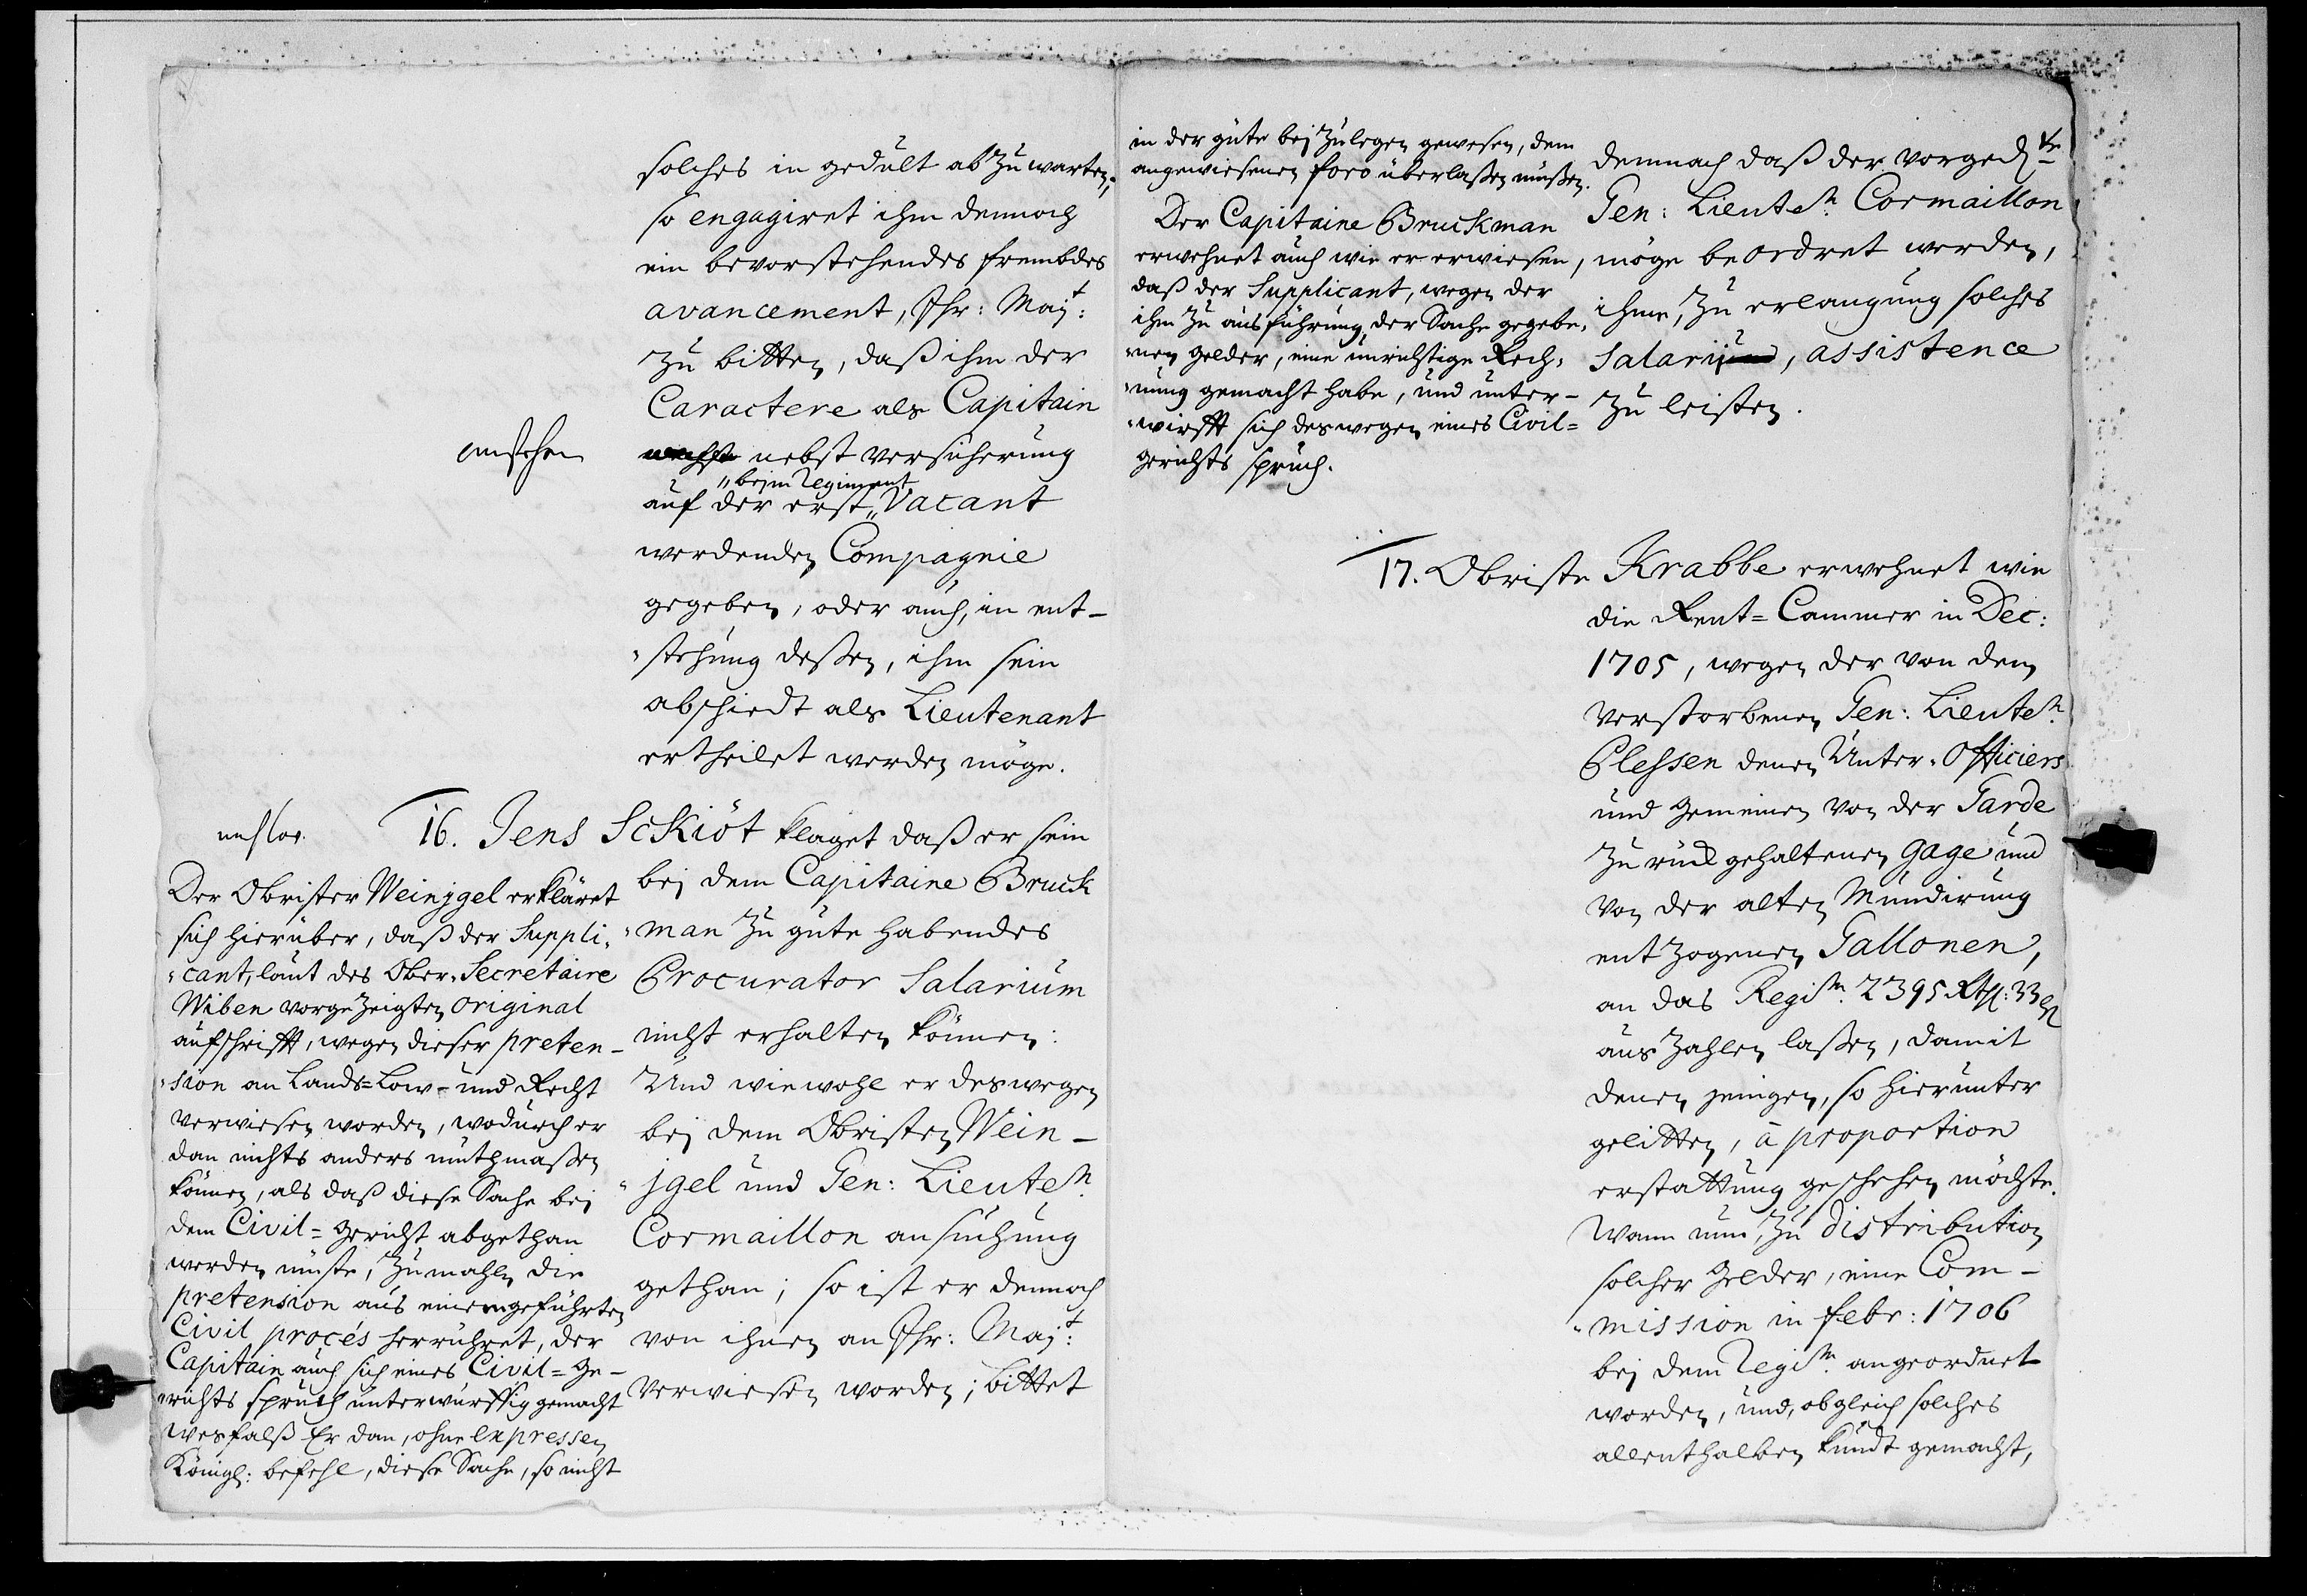 solches in gedult abzuwarten;
so engagiret ihm dennoch
ein bevorstehendes frembdes
avancement, Ihr: Maj:t
zu bitten, daß ihm der
Caractere als Capitain
nebst versicherung
"beym Regiment
auf der erst " Vacant
werdenden Compagnie
gegeben, oder auch, in ent-
"stehung deßen, ihm sein
abschiedt als Lieutenant
ertheilet werden möge.
anstehen
16. Jens Sckiöt klaget daß er sein
bej dem Capitaine Bruck
"man zu gute habendes
Procurator Salarium
nicht erhalten können:
Und wiewohl er deswegen
bej dem Obristen Wein-
"jgel und Gen: Lieuten
Cormaillon ansuchung
gethan; so ist er dennoch
von ihnen an Ihr: Maj:t
verwiesen worden; bittet
Der Obrister Weinjgel erkläret
sich hierüber, daß der Suppli,
"cant, laut des Ober-Secretaire
Wiben vorgezeigten original
aufschrifft, wegen dieser preten-
"sion an Lands=Low- und Recht
verwiesen worden, wodurch er
dan nichts anders muthmaßen
können, als daß diese Sache bei
dem Civil=gericht abgethan
werden müste, zumahlen die
pretension aus einem geführten
Civil procés herrühret, der
Capitain auch sich eines Civil=Ge-
"richts spruch unterwürffig gemacht
wesfalß Er dan, ohne expressen
Königl: befehl, diese Sache, so nicht
in der güte bej zulegen gewesen, dem
angewiesenen foro überlaßen müßen.
Der Capitaine Bruckman
erwehnet auch wie er erwiesen,
daß der Supplicant, wegen der
ihm zu ausführung der Sache gegebe,
"nen gelder, eine unrichtige Rech,
"nung gemacht habe, und unter-
"wirfft sich deswegen eines Civil=
gerichts spruch.
demnach daß der vorgedte
Gen: Lieuten Cormaillon
möge beordret werden,
ihme, zu erlangung solches
Salarij, assistence
zu leisten.
17. Obriste Krabbe erwehnet wie
die Rent=Cammer in Dec:
1705, wegen der von dem
verstorbenen Gen: Lieuten
Plessen denen Unter-Officiers
und gemeinen von der Garde
zurück gehaltenen gage und
von der alten Mundirung
entzogenen Gallonen,
an das Regim 2395 Rthl: 33 ß
auszahlen laßen, damit
denen jenigen, so hierunter
gelitten, à proportion
erstattung geschehen möchte.
Wann nun, zu distribution
solcher Gelder, eine Com-
"mission in febr: 1706
bej dem Regim angeordnet
worden, und, obgleich solches
allenthalben kundt gemacht,